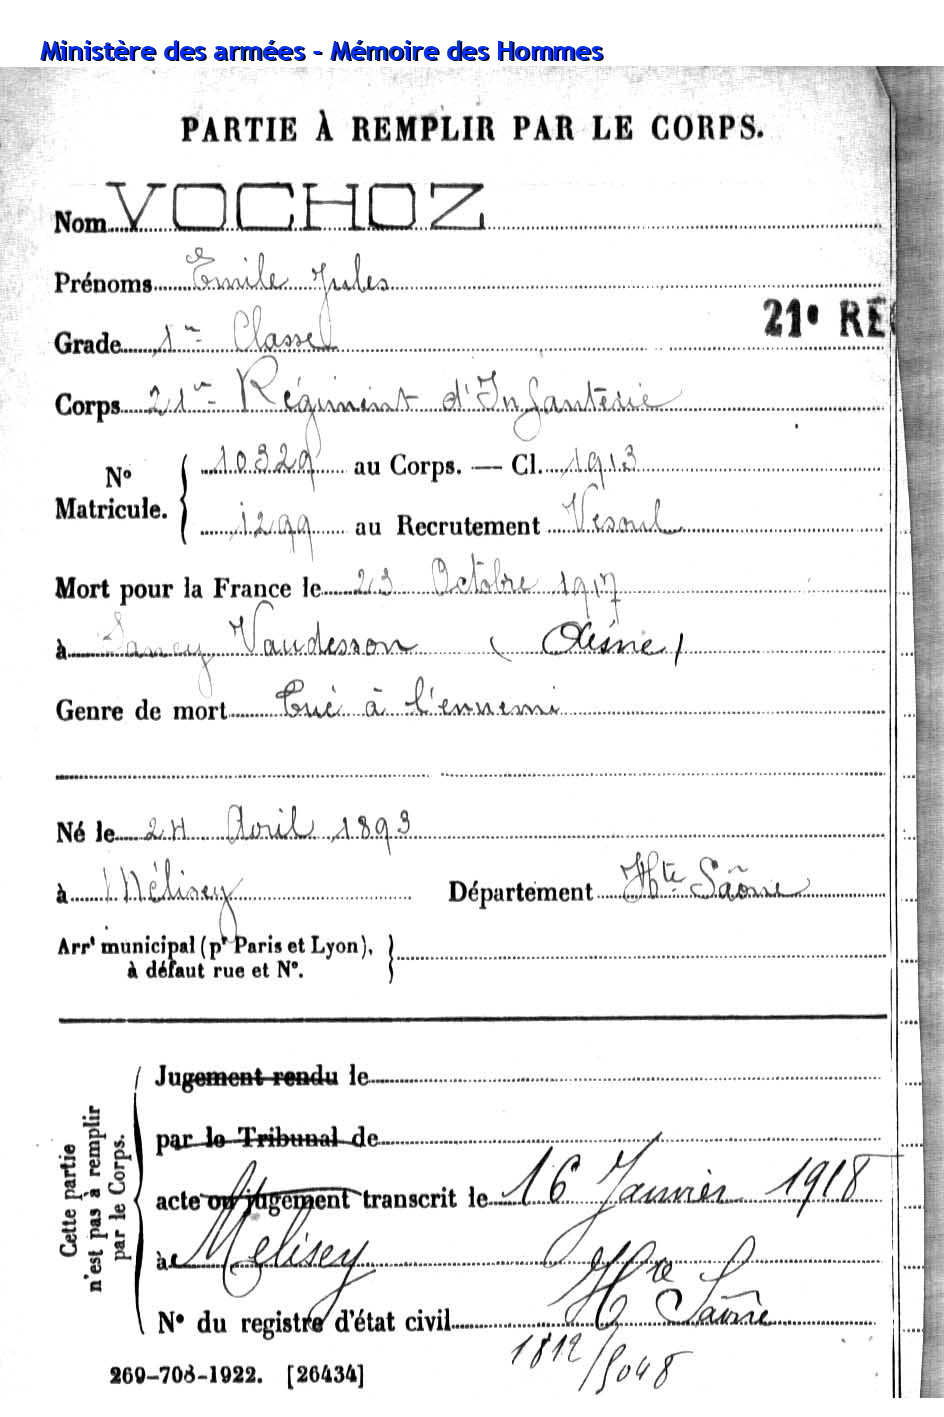 Ministère des armées - Mémoire des Hommes
PARTIE À REMPLIR PAR LE CORPS.
Nom VOCHOZ
Prénoms Emile Jules
21e RÉG
Grade 1re Classe
Corps 21e Régiment d'Infanterie
No Matricule. { 10329 au Corps. — Cl. 1913
1299 au Recrutement Vesoul
Mort pour la France le 23 Octobre 1917
à Sancy Vaudesson (Aisne)
Genre de mort Tué à l'ennemi
Né le 24 Avril 1893
à Mélisey Département Hte Saône
Arrt municipal (pr Paris et Lyon),
à défaut rue et No. }
Cette partie n'est pas à remplir par le Corps.
Jugement rendu le
par le Tribunal de
acte ou jugement transcrit le 16 Janvier 1918
à Mélisey Hte Saône
No du registre d'état civil
1812/5048
269-708-1922. [26434]